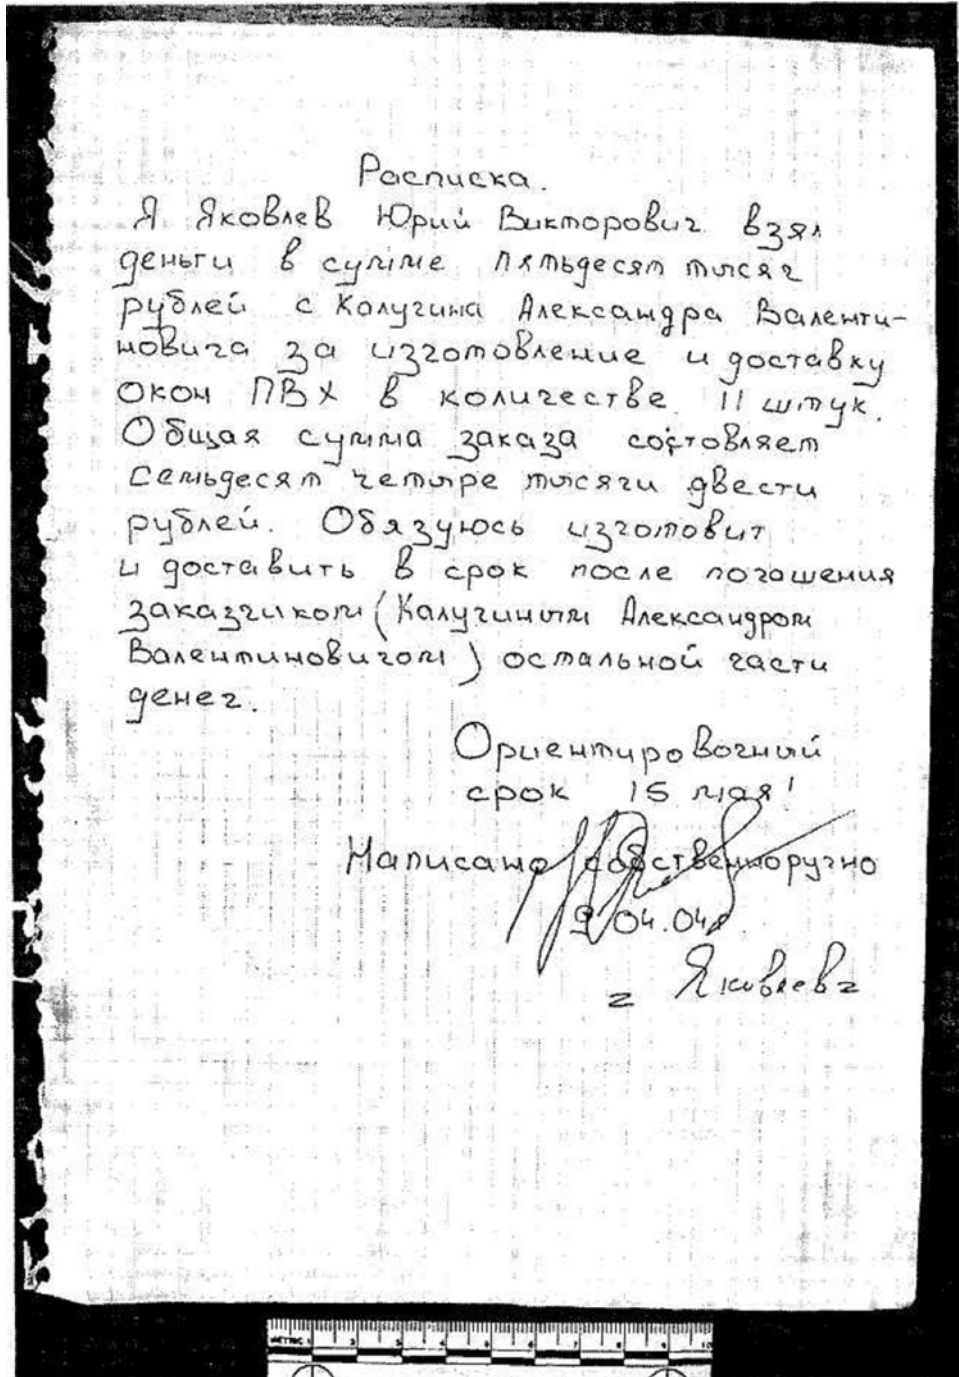 Расписка.
Я Яковлев Юрий Викторович взял
деньги в сумме пятьдесят тысяч
рублей с Калугина Александра Валенти-
новича за изготовление и доставку
окон ПВХ в количестве 11 штук.
Общая сумма заказа состовляет
семьдесят четыре тысячи двести
рублей. Обязуюсь изготовит
и доставить в срок после погошения
заказчиком (Калугиным Александром
Валентиновичом) остальной части
денег.
Ориентировочный
срок 15 мая!
Написано собственноручно
9 04.04
Яковлев
METRIC 1 2 3 4 5 6 7 8 9 10